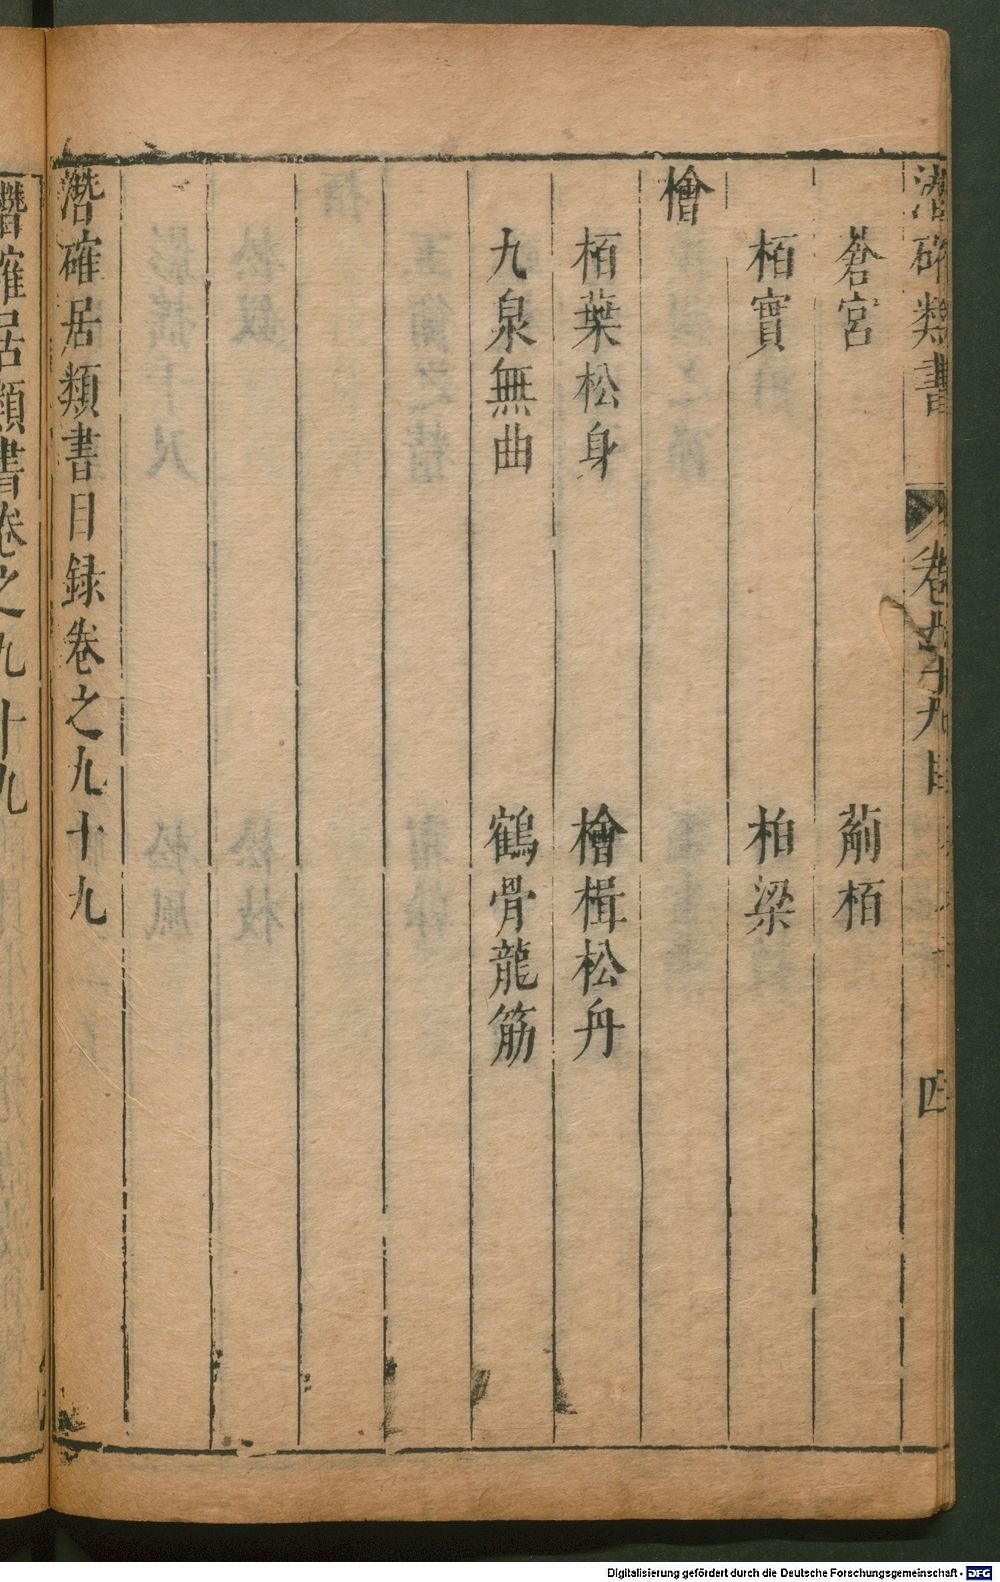 潛確類書 卷九十九目 四
蒼宮 荊栢
栢實 柏梁
檜
栢葉松身 檜楫松舟
九泉無曲 鶴骨龍筋
潛確居類書目録卷之九十九
潛確居類書卷之九十九
Digitalisierung gefördert durch die Deutsche Forschungsgemeinschaft - DFG